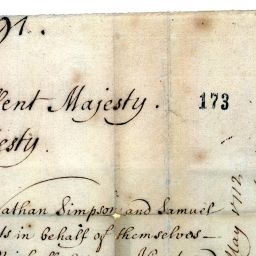 lent Majesty.
173
esty.
athan Simpson and Samuel
ts in behalf of themselves
May 1712